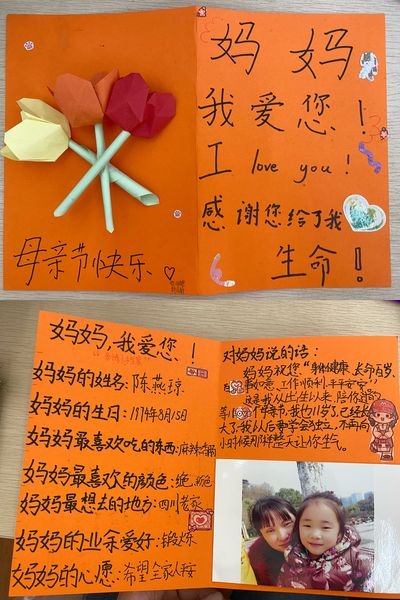 妈妈
我爱您！
I love you!
感谢您给了我
生命！
母亲节快乐
妈妈，我爱您！
妈妈的姓名：陈燕琼
妈妈的生日：1979年8月15日
妈妈最喜欢吃的东西：麻辣
妈妈最喜欢的颜色：
妈妈最想去的地方：四川老家
妈妈的业余爱好：锻炼
妈妈的心愿：希望全家人平安
对妈妈说的话：
妈妈祝您“身体健康、长命百岁、
事如意、工作顺利、平平安安”，
这是我从出生以来，陪你过的
第个母亲节，我也11岁了，已经长
大了，我从后要学会独立，不再向
小时候那样整天让你生气。